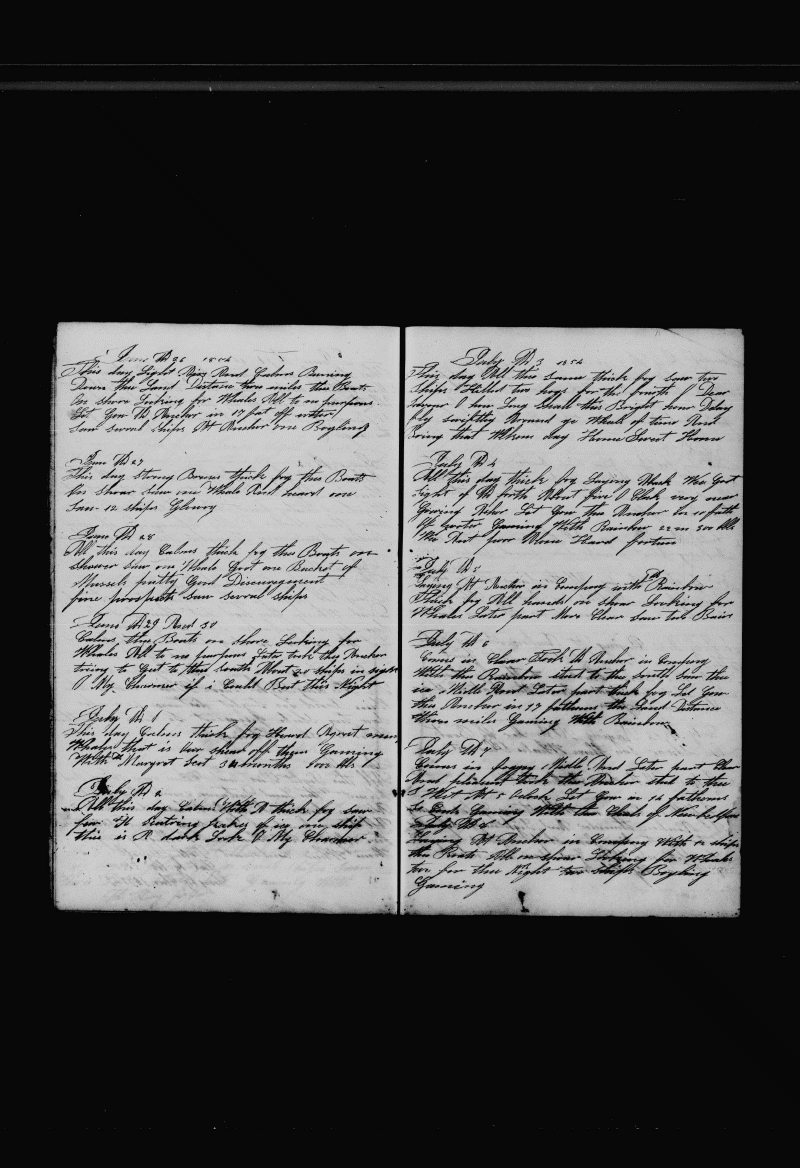 June th 26 1854
This day Light Airs And Calms Runing
Down the Land Distance three miles the Boats
On shore Looking for Whales All to no purpous
Let Gow th Anchor in 17 fat off water
Saw several ships At Anchor one Boyling
June th 27
This day strong Breeus thick fog the Boats
on shear saw one Whale And heard one
12 ships
June th 28
All this day Calms thick fog the Boats on
shower saw one Whale Goot one Bucket of
Mussels pritty Good Discuragement
fine prospects saw several ships
June th 29 And 30
Calms, the Boats on shore Looking for
Whales All to no purpous Later took the Anchor
triing to Get to the South About 20 ships in sight
O My if i Could But this Night
July th 1
This day Calms thick fog Heard A great meny
Whales that is Our off them Gaming
With Margret Scot months bbls
July th 2
All this day Calms With A thick fog saw
few one ship
this is A dark Look O My
July th 3 1854
This day All the same thick fog saw two
ships Killed two hogs for the fourth O Dear
O how Long Shall this Bright hour Delay
fly swiftly Around ye Wheels of time And
Bring that Whom day Home Sweet Home
July th 4
All this day thick fog Laying Aback Wee Goot
sight of th forth About five O Clock very near
Gowing Let Gow the Anchor in 10 fath
of water Gaming With Rainbow 22 m 300 bbls
We Are poor Men Hard fortun
July th 5
Laying At Anchor in Company with Rainbow
thick fog All hands on shear Looking for
Whales Later part More Clear saw
July th 6
Comes in Clear Took th Anchor in Company
With the Rainbow sterd to the South saw the
ice Midle And Later part thick fog Let Gow
the Anchor in 17 fathoms the Land Distance
three miles Gaming With Rainbow
July th 7
Comes in foggy Midle And Later part Clear
And plesent took the Anchor sterd to the
S West At 5 Oclock Let Gow in 14 fathoms
Gaming With the
July th 8
Laying At Anchor in Company With ships
the Boats All on shear Looking for Whales
for the Night two ships Boyling
Gaming